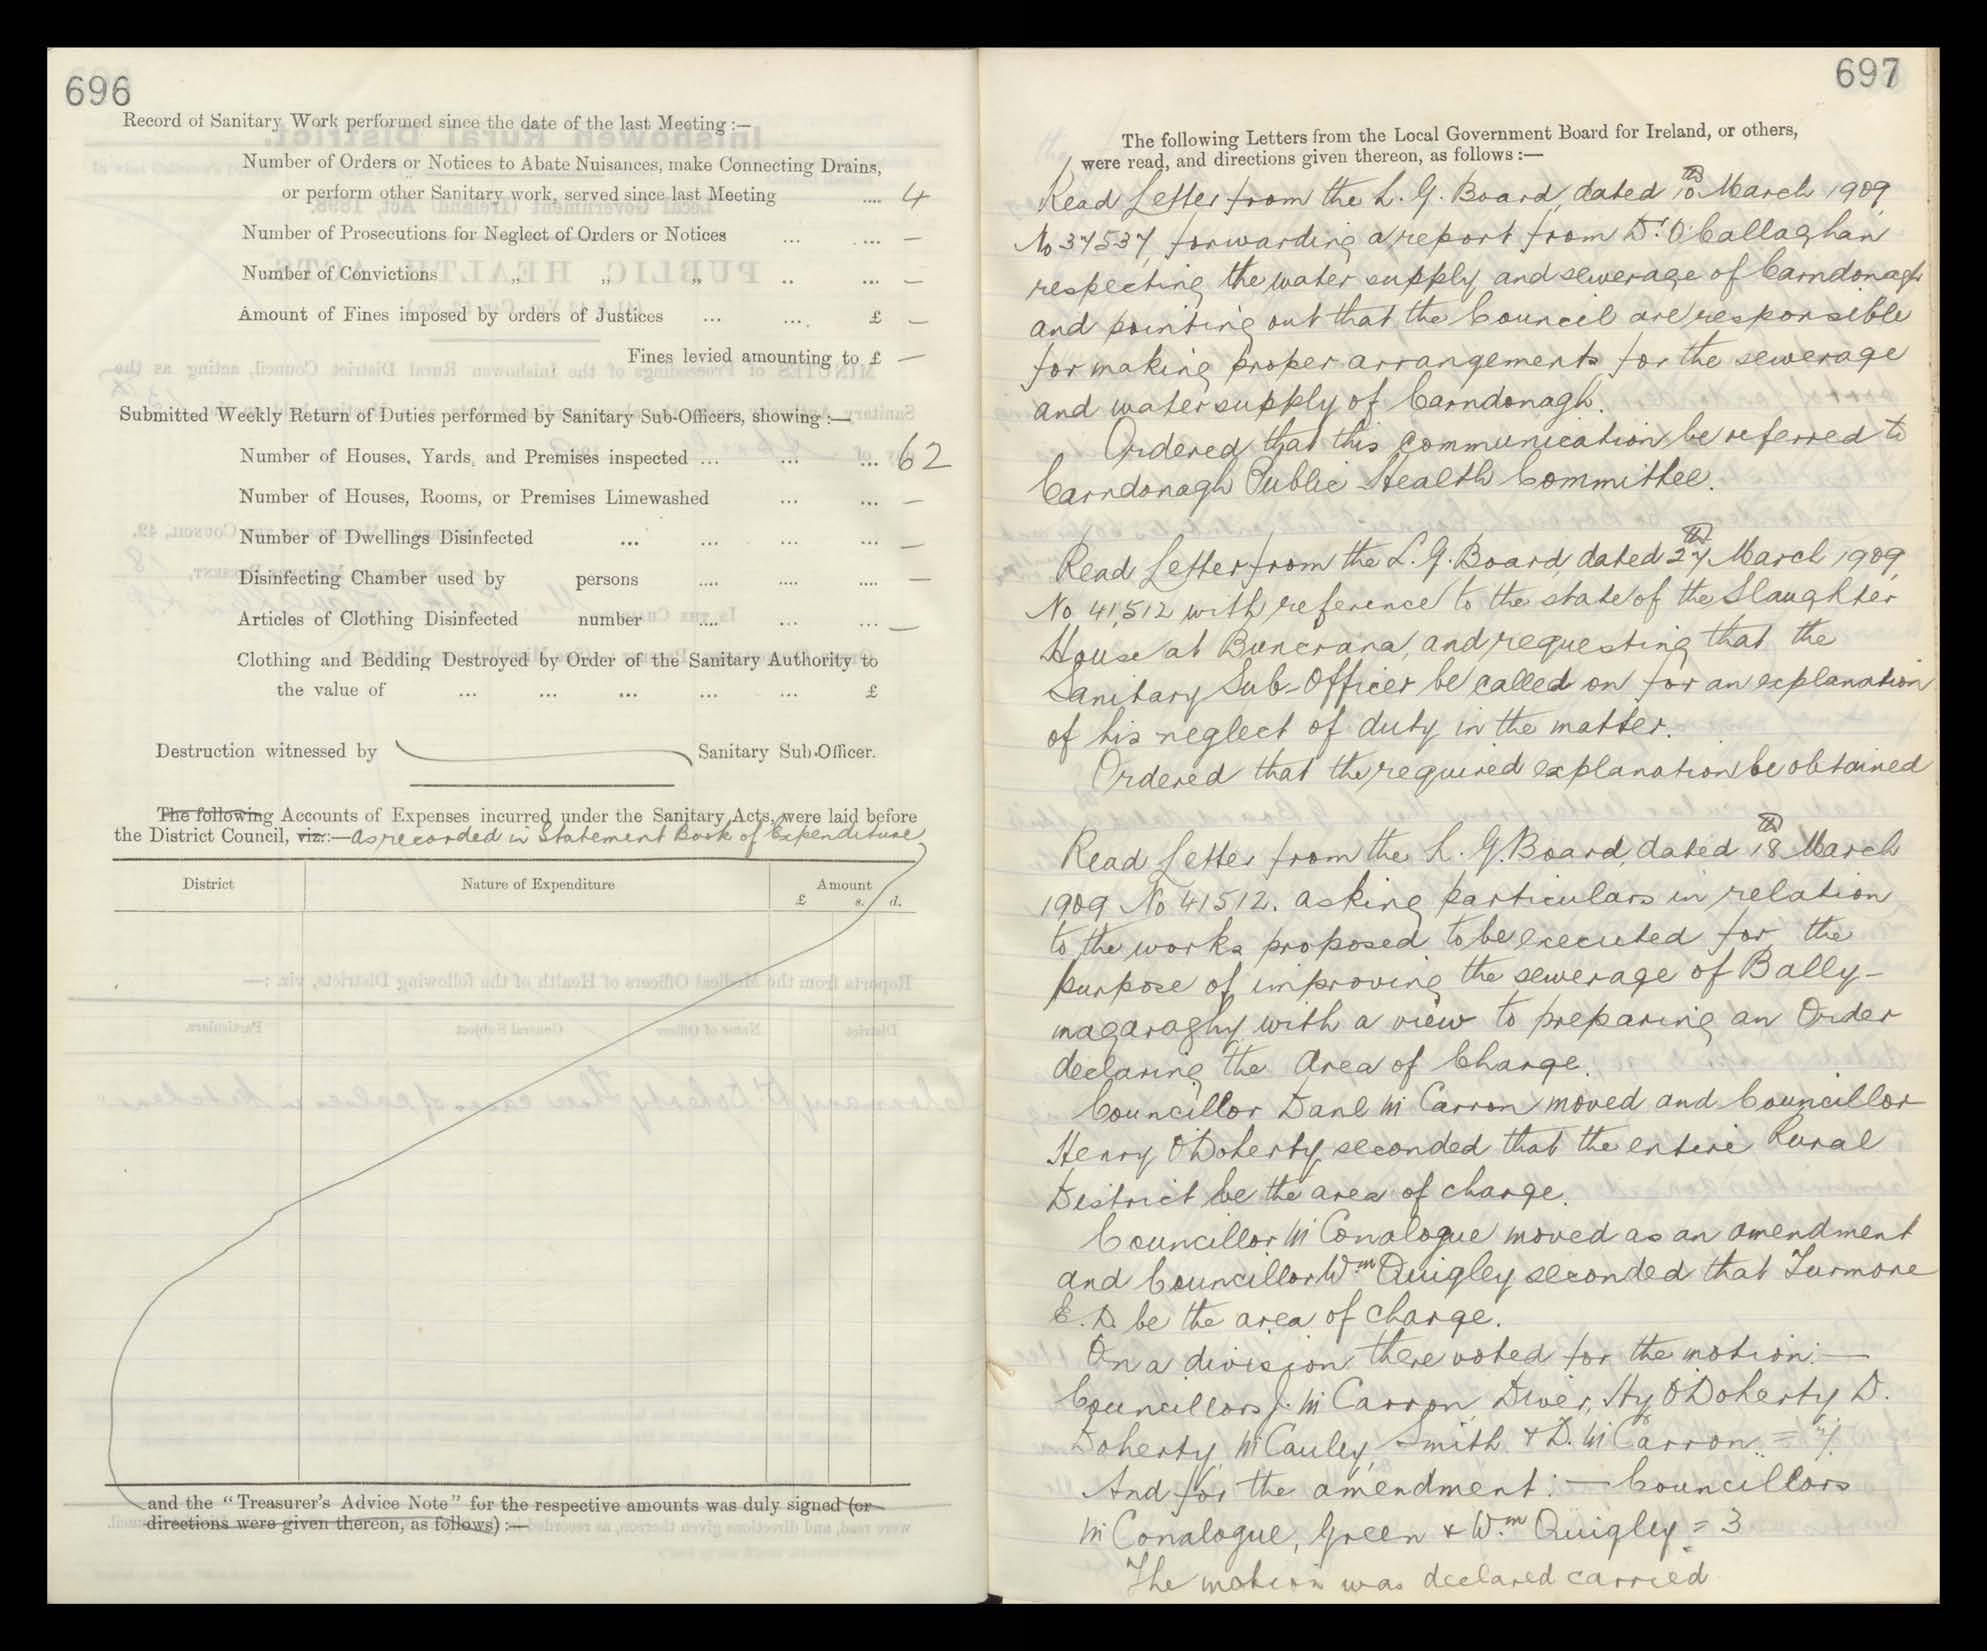 696
Record of Sanitary Work performed since the date of the last Meeting :—
Number of Orders or Notices to Abate Nuisances, make Connecting Drains,
or perform other Sanitary work, served since last Meeting .... 4
Number of Prosecutions for Neglect of Orders or Notices ... ... —
Number of Convictions „ „ „ .. ... —
Amount of Fines imposed by orders of Justices ... ... £ —
Fines levied amounting to £ —
Submitted Weekly Return of Duties performed by Sanitary Sub-Officers, showing :—
Number of Houses, Yards, and Premises inspected ... ... ... 62
Number of Houses, Rooms, or Premises Limewashed ... ... —
Number of Dwellings Disinfected ... ... ... ... —
Disinfecting Chamber used by persons .... .... .... —
Articles of Clothing Disinfected number .... ... ... —
Clothing and Bedding Destroyed by Order of the Sanitary Authority to
the value of ... ... ... ... ... £
Destruction witnessed by Sanitary Sub-Officer.
The following Accounts of Expenses incurred under the Sanitary Acts, were laid before
the District Council, viz.:— as recorded in Statement Book of Expenditure
District Nature of Expenditure Amount
£ s. d.
and the "Treasurer's Advice Note" for the respective amounts was duly signed (or
directions were given thereon, as follows) :—
697
The following Letters from the Local Government Board for Ireland, or others,
were read, and directions given thereon, as follows :—
Read Letter from the L. G. Board, dated 10th March 1909,
No 37537, forwarding a report from Dr. O'Callaghan
respecting the water supply and sewerage of Carndonagh
and pointing out that the Council are responsible
for making proper arrangements for the sewerage
and water supply of Carndonagh.
Ordered that this communication be referred to
Carndonagh Public Health Committee.
Read Letter from the L. G. Board, dated 27th March 1909,
No 41,512 with reference to the state of the Slaughter
House at Buncrana, and requesting that the
Sanitary Sub-Officer be called on for an explanation
of his neglect of duty in the matter.
Ordered that the required explanation be obtained
Read Letter from the L. G. Board, dated 18th March
1909 No 41512. asking particulars in relation
to the works proposed to be executed for the
purpose of improving the sewerage of Bally-
magaraghy with a view to preparing an Order
declaring the Area of Charge.
Councillor Danl McCarron moved and Councillor
Henry O'Doherty seconded that the entire Rural
District be the area of charge.
Councillor McConalogue moved as an amendment
and Councillor Wm Quigley seconded that Turmone
E. D. be the area of charge.
On a division there voted for the motion:—
Councillors J. McCarron, Diver, Hy O'Doherty D.
Doherty, McCauley, Smith & D. McCarron = 7.
And for the amendment:— Councillors
McConalogue, Green & Wm. Quigley = 3
The motion was declared carried